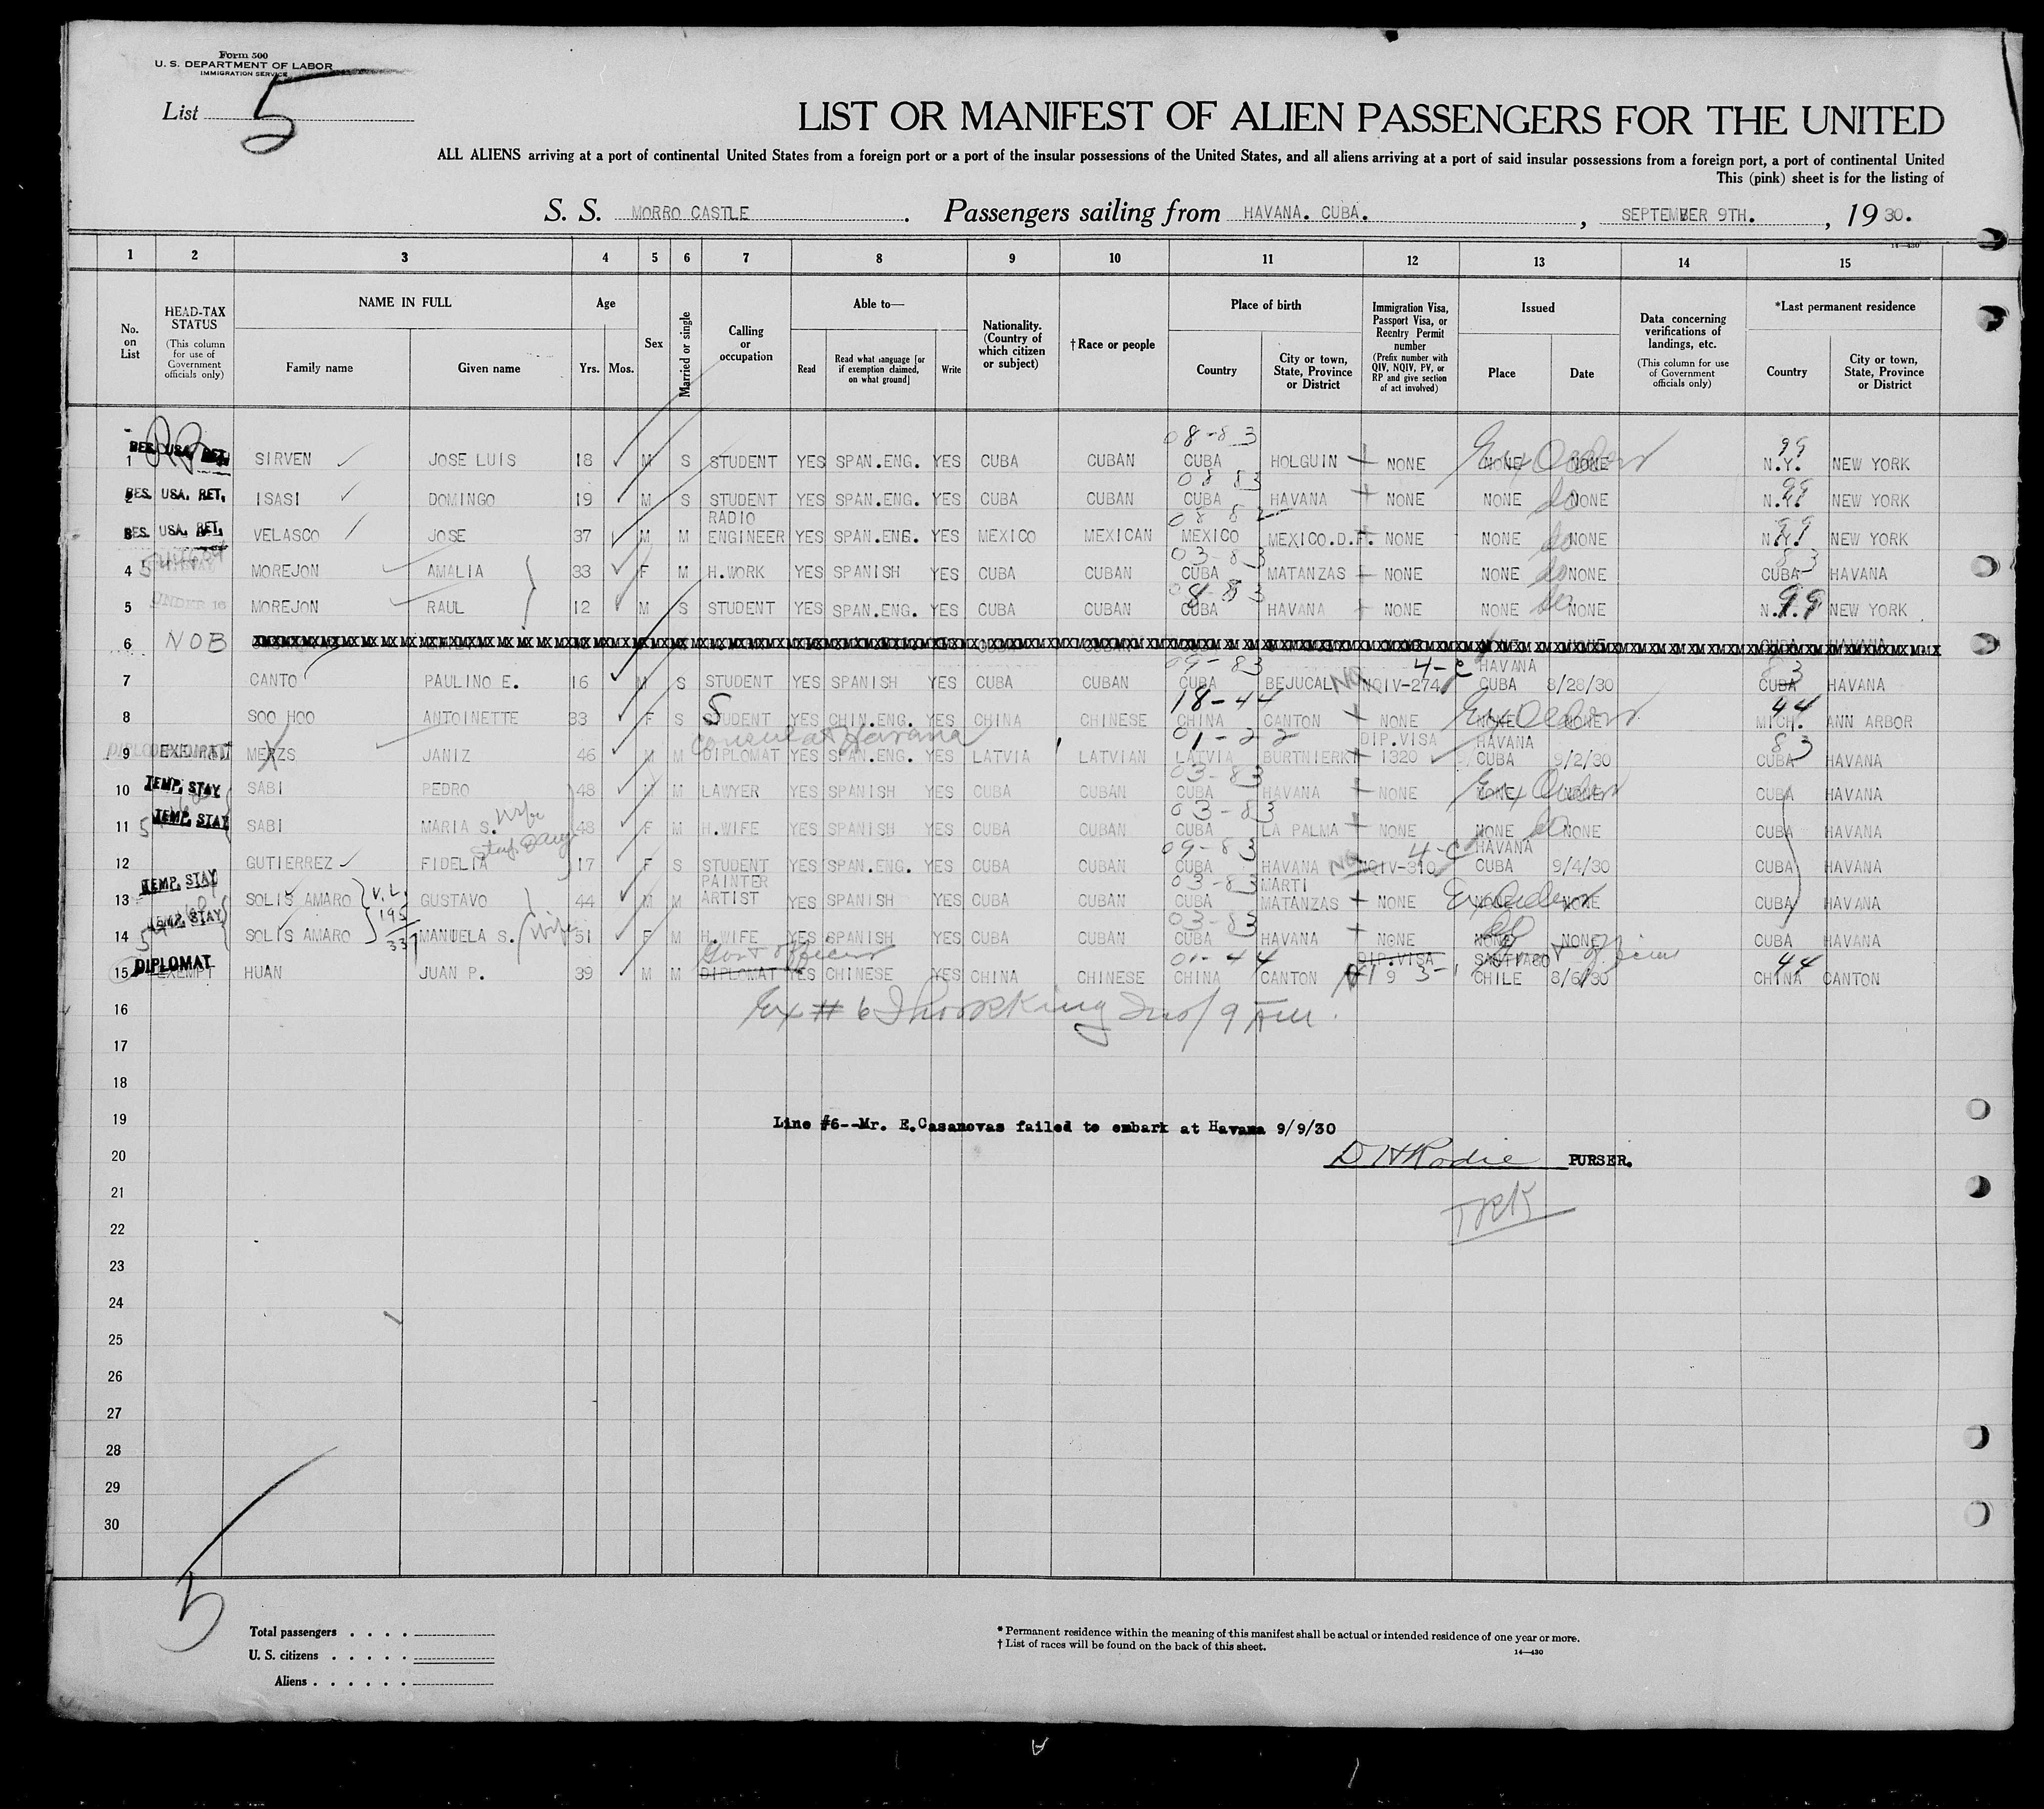 Form 500
U. S. DEPARTMENT OF LABOR
IMMIGRATION SERVICE
List 5
LIST OR MANIFEST OF ALIEN PASSENGERS FOR THE UNITED
ALL ALIENS arriving at a port of continental United States from a foreign port or a port of the insular possessions of the United States, and all aliens arriving at a port of said insular possessions from a foreign port, a port of continental United
This (pink) sheet is for the listing of
S. S. MORRO CASTLE. Passengers sailing from HAVANA. CUBA., SEPTEMBER 9TH., 19 30.
14—430
1 2 3 4 5 6 7 8 9 10 11 12 13 14 15
No. on List
HEAD-TAX STATUS (This column for use of Government officials only)
NAME IN FULL
Family name Given name
Age
Yrs. Mos.
Sex
Married or single
Calling or occupation
Able to—
Read Read what language [or if exemption claimed, on what ground] Write
Nationality. (Country of which citizen or subject)
†Race or people
Place of birth
Country City or town, State, Province or District
Immigration Visa, Passport Visa, or Reentry Permit number (Prefix number with QIV, NQIV, PV, or RP and give section of act involved)
Issued
Place Date
Data concerning verifications of landings, etc. (This column for use of Government officials only)
*Last permanent residence
Country City or town, State, Province or District
08-83 99
1 RES. USA. RET. SIRVEN JOSE LUIS 18 M S STUDENT YES SPAN.ENG. YES CUBA CUBAN CUBA HOLGUIN NONE NONE NONE N.Y. NEW YORK
08 83 99
2 RES. USA. RET. ISASI DOMINGO 19 M S STUDENT YES SPAN.ENG. YES CUBA CUBAN CUBA HAVANA NONE NONE do NONE N.Y. NEW YORK
3 RES. USA. RET. VELASCO JOSE 37 M M RADIO ENGINEER YES SPAN.ENG. YES MEXICO MEXICAN MEXICO MEXICO.D.F. NONE NONE do NONE N.Y. NEW YORK
03-83 83
4 MOREJON AMALIA 33 F M H.WORK YES SPANISH YES CUBA CUBAN CUBA MATANZAS NONE NONE do NONE CUBA HAVANA
08-83 99
5 UNDER 16 MOREJON RAUL 12 M S STUDENT YES SPAN.ENG. YES CUBA CUBAN CUBA HAVANA NONE NONE do NONE N.Y. NEW YORK
6 NOB
09-83 4-C
7 CANTO PAULINO E. 16 M S STUDENT YES SPANISH YES CUBA CUBAN CUBA BEJUCAL NO NQIV-274 HAVANA CUBA 8/28/30 CUBA HAVANA
18-44 44
8 SOO HOO ANTOINETTE 33 F S STUDENT YES CHIN.ENG. YES CHINA CHINESE CHINA CANTON NONE NONE NONE MICH. ANN ARBOR
Consul at Havana 01-22 83
9 EXEMPT MERZS JANIZ 46 M M DIPLOMAT YES SPAN.ENG. YES LATVIA LATVIAN LATVIA BURTNIERKI DIP.VISA 1320 HAVANA CUBA 9/2/30 CUBA HAVANA
03-83
10 TEMP. STAY SABI PEDRO 48 M M LAWYER YES SPANISH YES CUBA CUBAN CUBA HAVANA NONE NONE NONE CUBA HAVANA
03-83
11 TEMP. STAY SABI MARIA S. Wife 48 F M H.WIFE YES SPANISH YES CUBA CUBAN CUBA LA PALMA NONE NONE do NONE CUBA HAVANA
09-83 4-C
12 GUTIERREZ FIDELIA 17 F S STUDENT YES SPAN.ENG. YES CUBA CUBAN CUBA HAVANA NO NQIV-310 HAVANA CUBA 9/4/30 CUBA HAVANA
03-83
13 TEMP. STAY SOLIS AMARO V.L. GUSTAVO 44 M M PAINTER ARTIST YES SPANISH YES CUBA CUBAN CUBA MARTI MATANZAS NONE NONE NONE CUBA HAVANA
195 03-83
14 TEMP. STAY SOLIS AMARO 337 MANUELA S. Wife 51 F M H.WIFE YES SPANISH YES CUBA CUBAN CUBA HAVANA NONE NONE do NONE CUBA HAVANA
Govt Officer 01-44 44
15 DIPLOMAT EXEMPT HUAN JUAN P. 39 M M DIPLOMAT YES CHINESE YES CHINA CHINESE CHINA CANTON DIP.VISA 3-1 SANTIAGO CHILE 8/6/30 CHINA CANTON
16
17
18
19 Line #6--Mr. E.Casanovas failed to embark at Havana 9/9/30
20 D H Rodie PURSER.
21
22
23
24
25
26
27
28
29
30
5
Total passengers
U. S. citizens
Aliens
* Permanent residence within the meaning of this manifest shall be actual or intended residence of one year or more.
† List of races will be found on the back of this sheet.
14—430